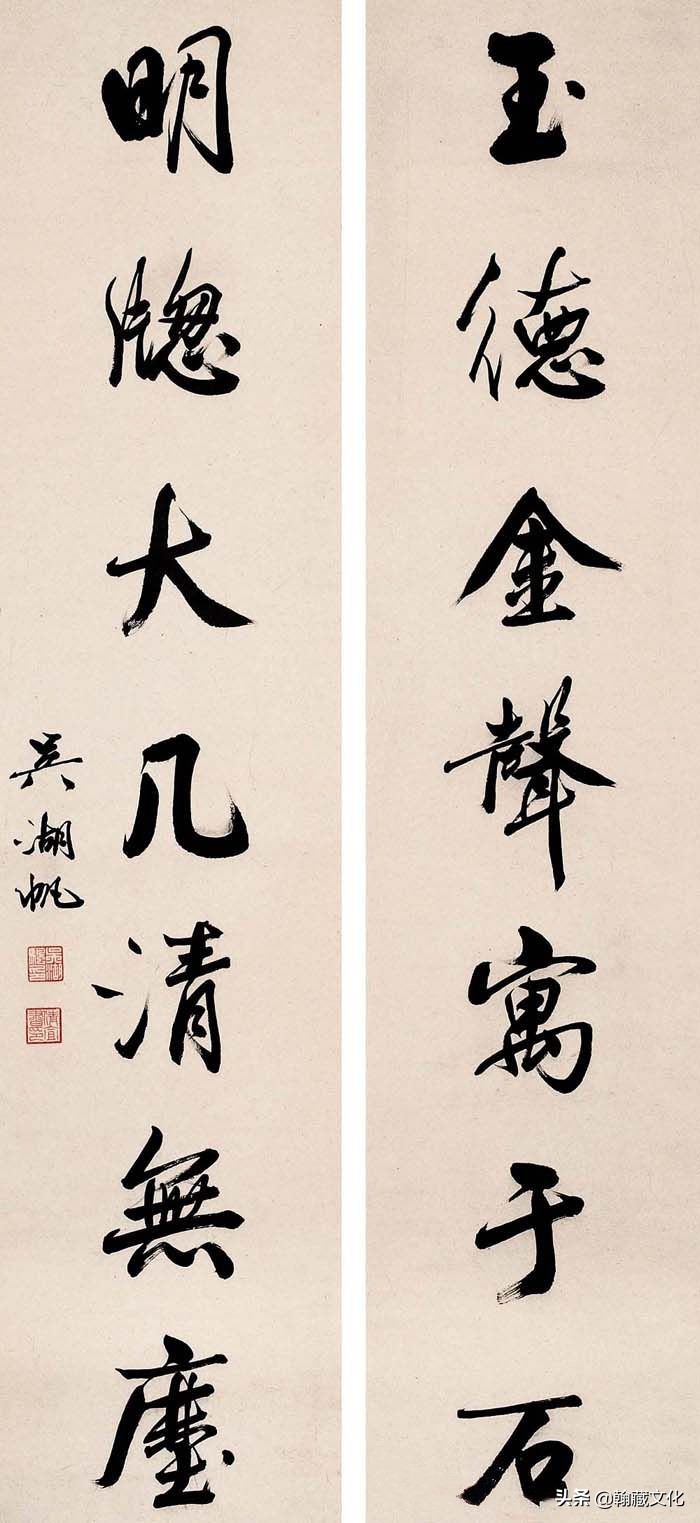 玉德金聲寓于石
明牎大几清無塵
吳湖帆
头条 @翰藏文化